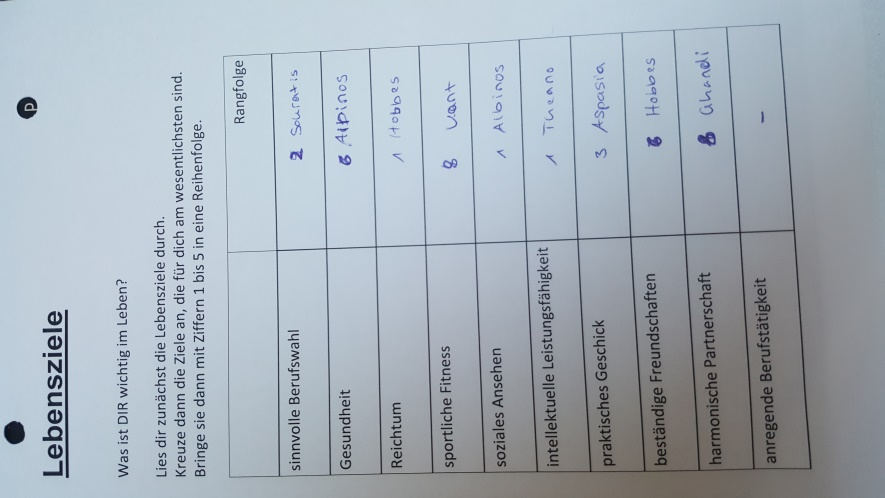 p
Lebensziele
Was ist DIR wichtig im Leben?
Lies dir zunächst die Lebensziele durch.
Kreuze dann die Ziele an, die für dich am wesentlichsten sind.
Bringe sie dann mit Ziffern 1 bis 5 in eine Reihenfolge.
Rangfolge
sinnvolle Berufswahl 2 Sokratis
Gesundheit 6 Albinos
Reichtum 1 Hobbes
sportliche Fitness 8 Kant
soziales Ansehen 1 Albinos
intellektuelle Leistungsfähigkeit 1 Theano
praktisches Geschick 3 Aspasia
beständige Freundschaften Hobbes
harmonische Partnerschaft 8 Ghandi
anregende Berufstätigkeit –